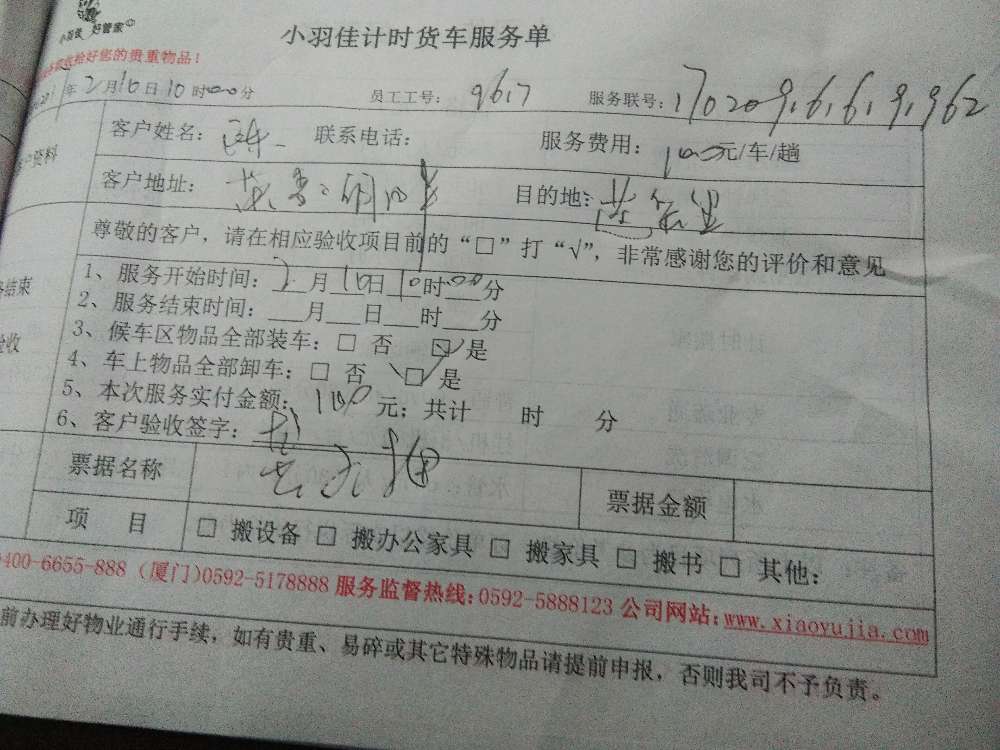 小羽佳 好管家
小羽佳计时货车服务单
给好您的贵重物品！
年2月10日10时00分 员工工号：9617 服务联号：
客户姓名： 联系电话： 服务费用：100元/车/趟
户资料
客户地址： 目的地：
尊敬的客户，请在相应验收项目前的“□”打“√”，非常感谢您的评价和意见
1、服务开始时间：2月10日10时00分
结束
2、服务结束时间：___月___日___时___分
3、候车区物品全部装车：□ 否 ☑ 是
验收
4、车上物品全部卸车：□ 否 ☑ 是
5、本次服务实付金额：100元；共计 时 分
6、客户验收签字：
票据名称 票据金额
项 目 □ 搬设备 □ 搬办公家具 □ 搬家具 □ 搬书 □ 其他：
400-6655-888（厦门）0592-5178888 服务监督热线：0592-5888123 公司网站：www.xiaoyujia.com
前办理好物业通行手续，如有贵重、易碎或其它特殊物品请提前申报，否则我司不予负责。